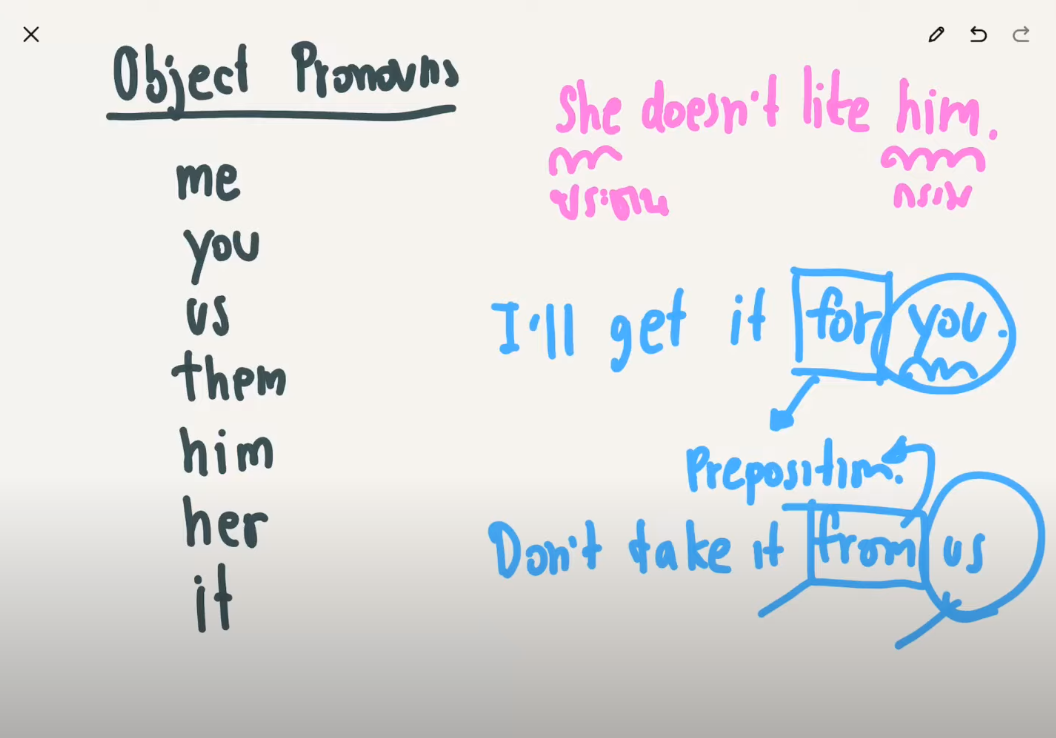 Object Pronouns
me
you
us
them
him
her
it
She doesn't like him.
ประธาน กรรม
I'll get it for you.
Preposition.
Don't take it from us